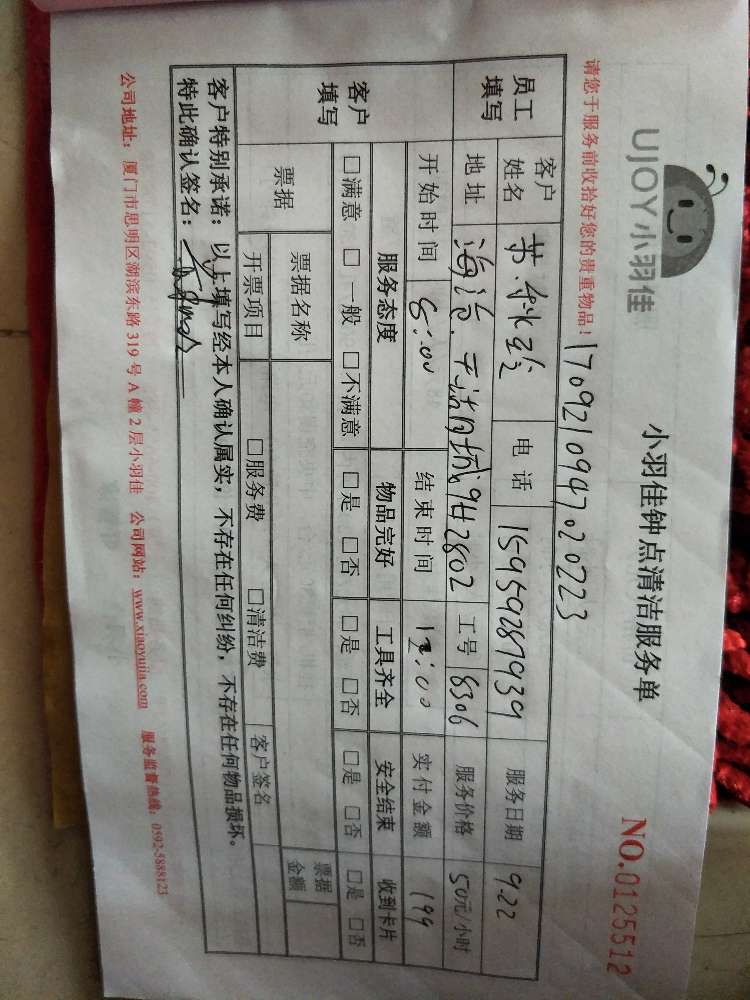 UJOY小羽佳
小羽佳钟点清洁服务单
NO.0125512
请您于服务前收拾好您的贵重物品！
17092109470 20223
员工填写 客户姓名 电话 15959281939 服务日期 9.22
地址 9#2802 工号 8306 服务价格 50元/小时
开始时间 8:00 结束时间 12:00 实付金额 199
客户填写 服务态度 物品完好 工具齐全 安全结束 收到卡片
□满意 □一般 □不满意 □是 □否 □是 □否 □是 □否 □是 □否
票据 票据名称 票据金额
开票项目 □服务费 □清洁费 客户签名
客户特别承诺：以上填写经本人确认属实，不存在任何纠纷，不存在任何物品损坏。
特此确认签名：
公司地址：厦门市思明区湖滨东路 319 号 A 幢 2 层小羽佳 公司网站：www.xiaoyujia.com 服务监督热线：0592-5888123